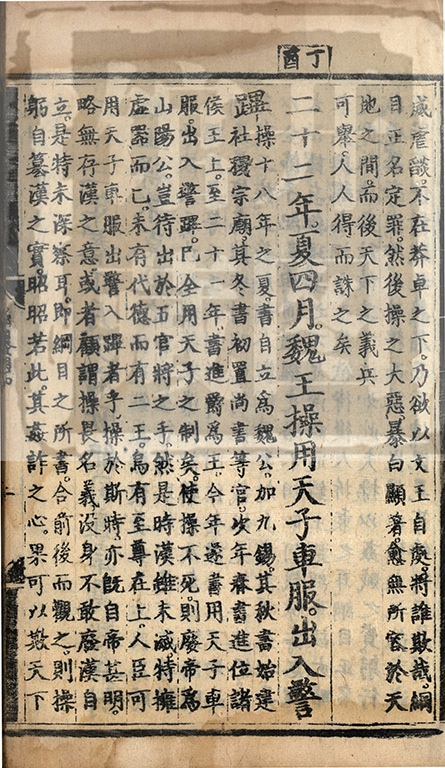 丁酉
威虐燄。不在莽卓之下。乃欲以文王自處。將誰欺哉。綱
目正名定罪。然後操之大惡暴白顯著。愈無所容於天
地之間。而後天下之義兵
可舉。人人得而誅之矣
二十二年。夏四月。魏王操用天子車服。出入警
蹕 操十八年之夏。書自立爲魏公。加九錫。其秋書始建
社稷宗廟。其冬書初置尚書等官。次年春書進位諸
侯王上。至二十一年。書進爵爲王。今年遂書用天子車
服。出入警蹕。凡全用天子之制矣。使操不死。則廢帝爲
山陽公。豈待出於五官將之手。然是時漢雖未滅。特擁
虛器而已。未有代德而有二王。烏有至尊在上。人臣可
用天子車服出警入蹕者乎。操於斯時。亦旣自帝甚明。
略無存漢之意。或者顧謂操畏名義沒身不敢廢漢自
立。是特未深察耳。即綱目之所書。合前後而觀之。則操
躬自簒漢之實。昭昭若此。其姦詐之心。果可以欺天下